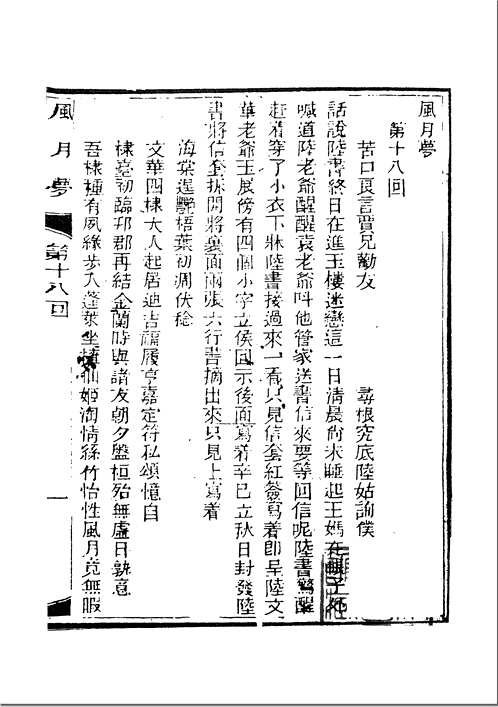 風月夢
第十八回
苦口良言賈兄勸友 尋根究底陸姑詢僕
話說陸書終日在進玉樓迷戀這一日清晨尚未睡起王媽在
喊道陸老爺醒醒袁老爺呌他管家送書信來要等回信呢陸書驚醒
赶着穿了小衣下牀陸書接過來一看只見信套紅簽寫着卽呈陸文
華老爺玉展傍有四個小字立侯回示後面寫着辛巳立秋日封發陸
書將信套拆開將裏面兩張六行書摘出來只見上寫着
海棠逞艷梧葉初凋伏稔
文華四棣大人起居迪吉禧履亨嘉定符私頌憶自
棣臺初臨邗郡再結金蘭時與諸友朝夕盤桓殆無虛日孰意
吾棣種有夙緣步入蓬萊坐擁仙姬淘情絲竹怡性風月竟無暇
風月夢 第十八回 一